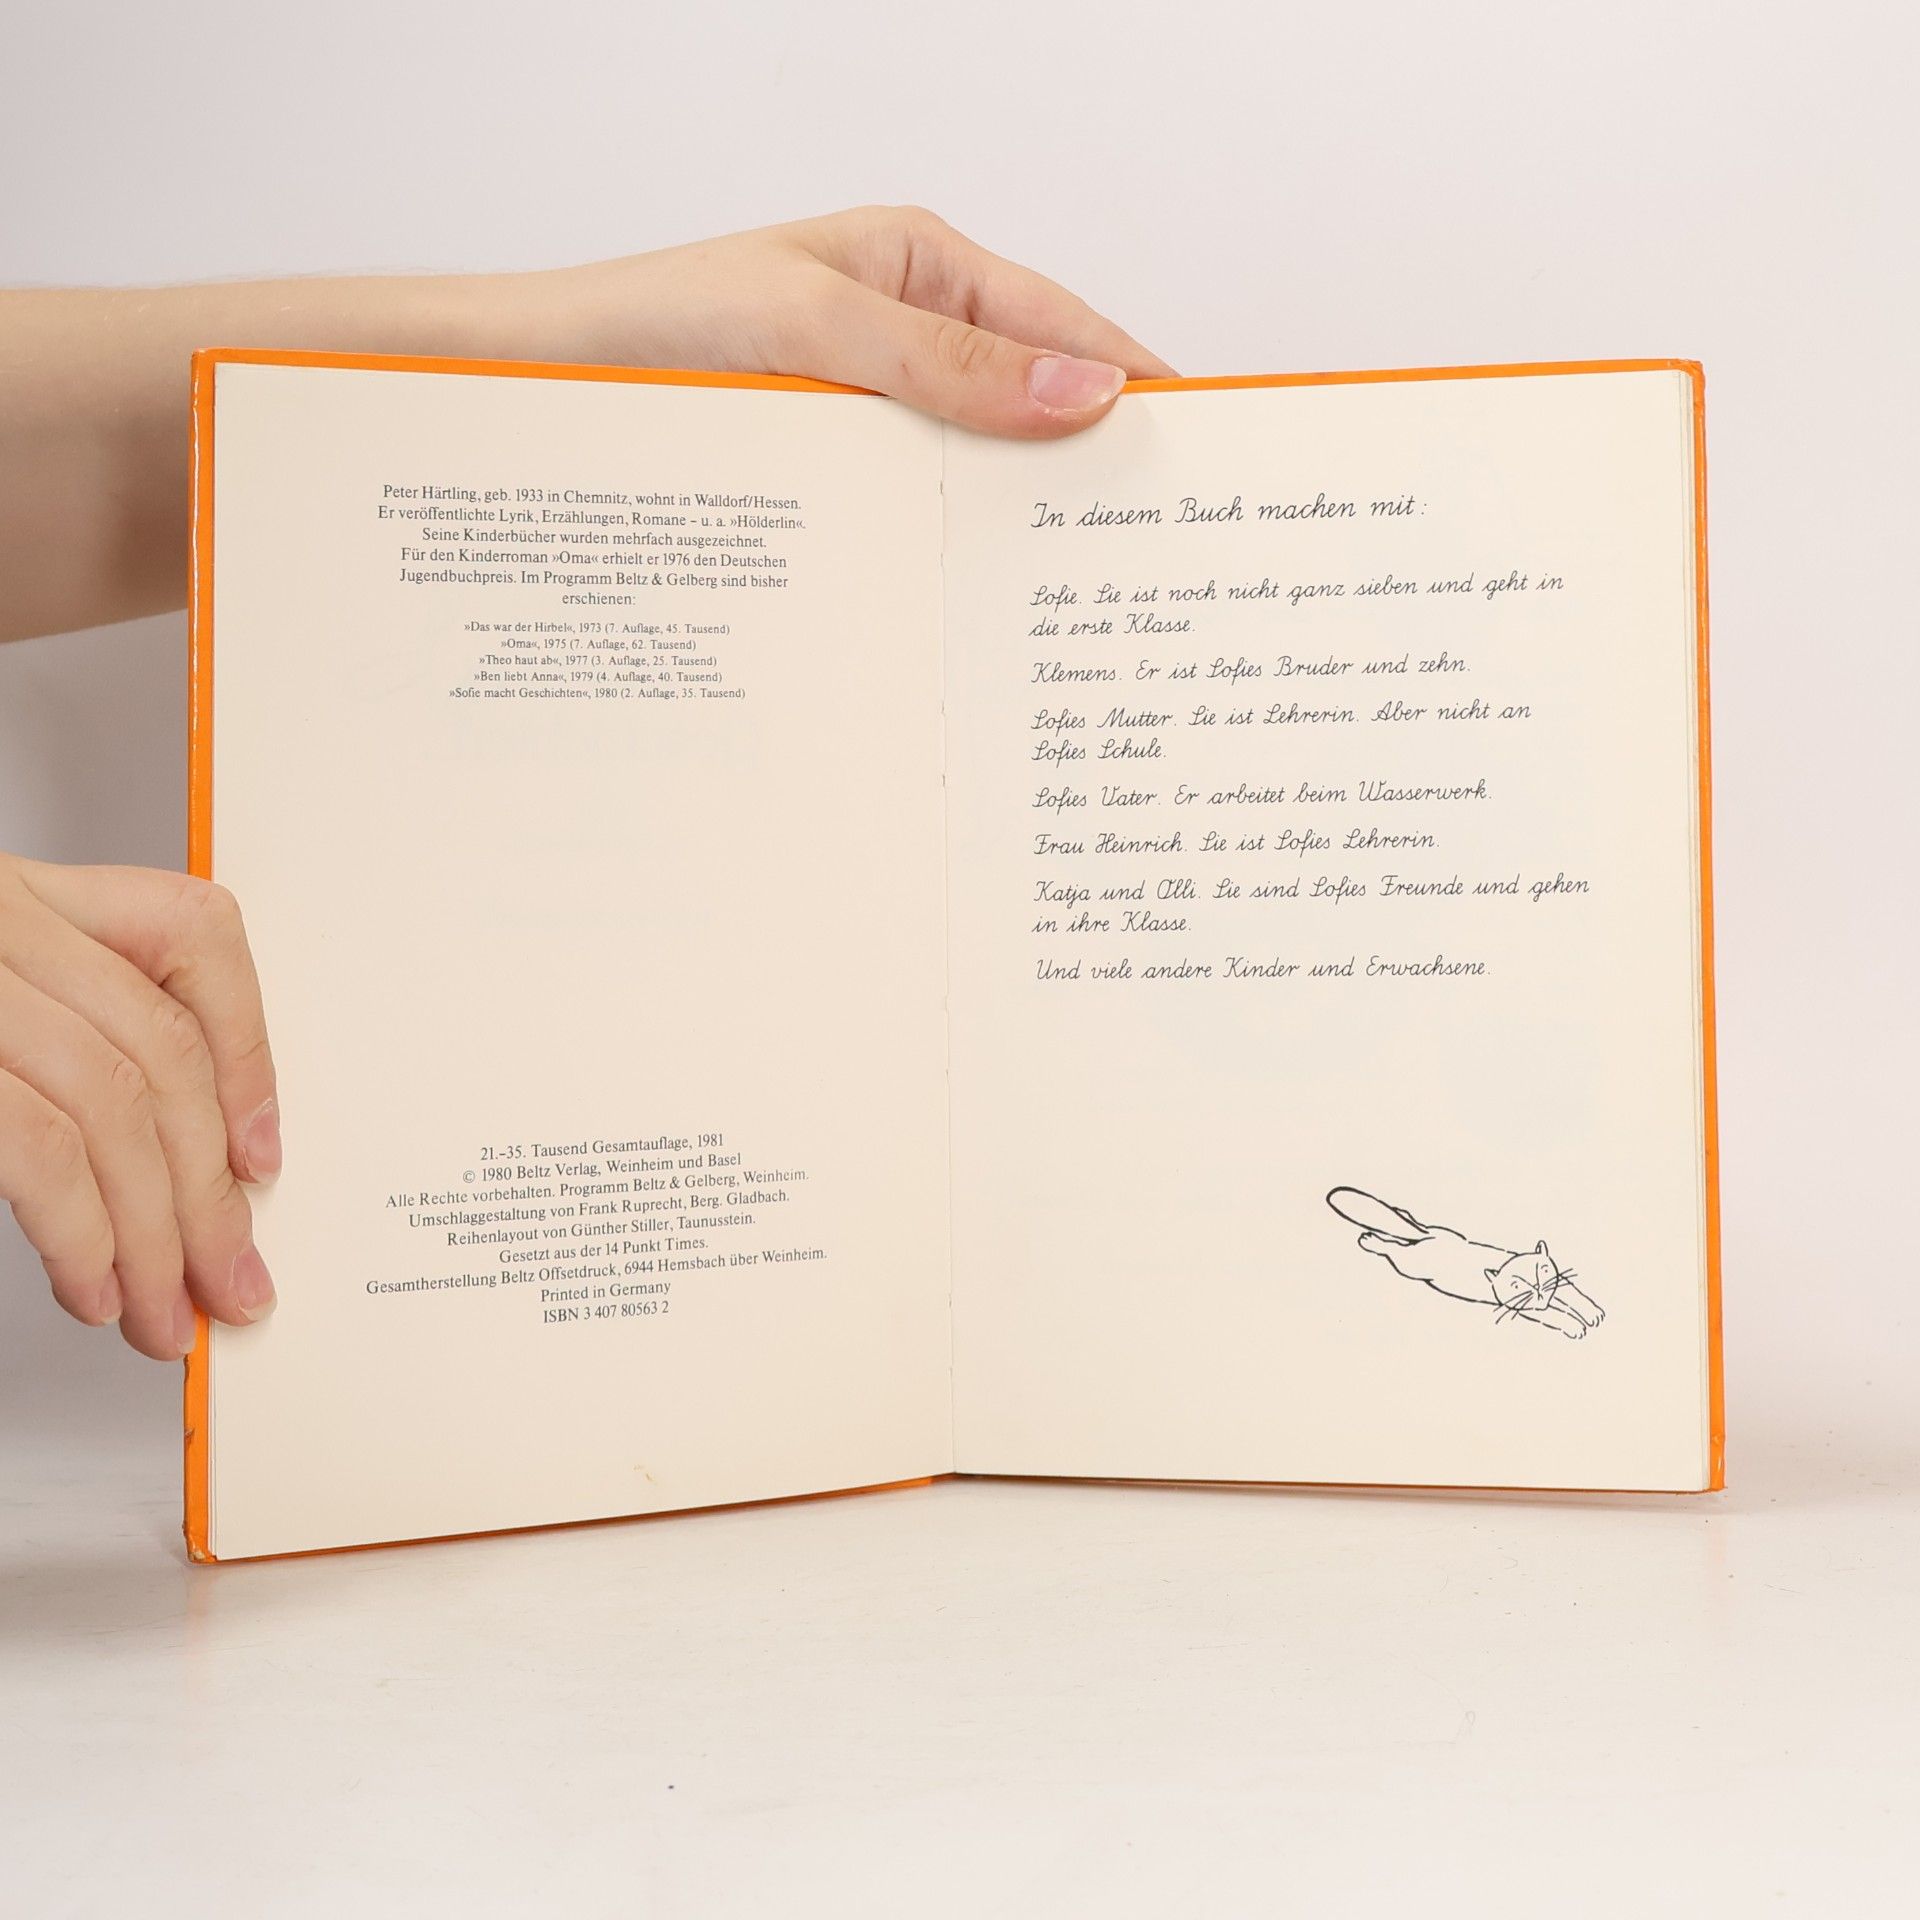 Peter Härtling, geb. 1933 in Chemnitz, wohnt in Walldorf/Hessen.
Er veröffentlichte Lyrik, Erzählungen, Romane – u. a. »Hölderlin«.
Seine Kinderbücher wurden mehrfach ausgezeichnet.
Für den Kinderroman »Oma« erhielt er 1976 den Deutschen
Jugendbuchpreis. Im Programm Beltz & Gelberg sind bisher
erschienen:
»Das war der Hirbel«, 1973 (7. Auflage, 45. Tausend)
»Oma«, 1975 (7. Auflage, 62. Tausend)
»Theo haut ab«, 1977 (3. Auflage, 25. Tausend)
»Ben liebt Anna«, 1979 (4. Auflage, 40. Tausend)
»Sofie macht Geschichten«, 1980 (2. Auflage, 35. Tausend)
21.–35. Tausend Gesamtauflage, 1981
© 1980 Beltz Verlag, Weinheim und Basel
Alle Rechte vorbehalten. Programm Beltz & Gelberg, Weinheim.
Umschlaggestaltung von Frank Ruprecht, Berg. Gladbach.
Reihenlayout von Günther Stiller, Taunusstein.
Gesetzt aus der 14 Punkt Times.
Gesamtherstellung Beltz Offsetdruck, 6944 Hemsbach über Weinheim.
Printed in Germany
ISBN 3 407 80563 2
In diesem Buch machen mit:
Sofie. Sie ist noch nicht ganz sieben und geht in
die erste Klasse.
Klemens. Er ist Sofies Bruder und zehn.
Sofies Mutter. Sie ist Lehrerin. Aber nicht an
Sofies Schule.
Sofies Vater. Er arbeitet beim Wasserwerk.
Frau Heinrich. Sie ist Sofies Lehrerin.
Katja und Olli. Sie sind Sofies Freunde und gehen
in ihre Klasse.
Und viele andere Kinder und Erwachsene.